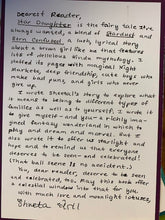 Dearest Reader,
Star Daughter is the fairy tale I've
always wanted, a blend of Stardust and
Bern Confessor with lyrical story
about a brown girl like me that
lots of delicious Hindu mythology. I
stuffed its pages with magical night
markets, deep friendship, cute boys who
make bad puns, and girls who never
give up.
I wrote Sheetal's story to explore what
it means to belong to different types of
families as well as to yourself. I wrote it
to give myself and you a richly imagined
fantasy wonderland in which to
play and dream and marvel. But I
also wrote it to offer us starlight and
hope and to remind us that everyone
deserves to be seen and celebrated!
(That ball scene is no accident.)
You, dear reader, deserve to be seen
and celebrated, too. May this book offer
a celestial window into that for you
with much love and moonlight lotuses,
Shveta